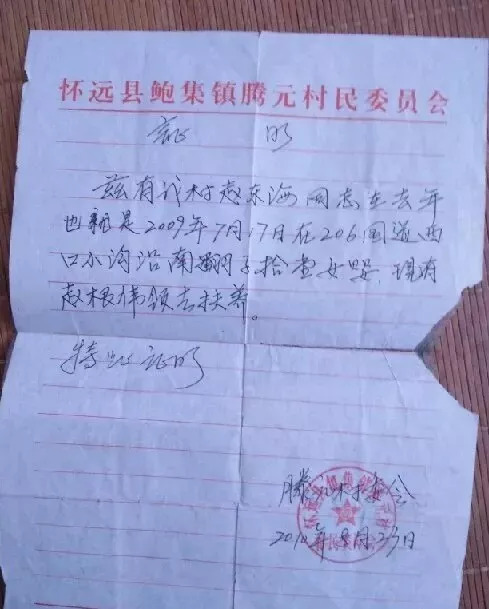 怀远县鲍集镇腾元村民委员会
证 明
兹有我村赵东海同志在去年
也就是2009年7月17日在206国道西
口水沟沿南 拾壹女婴,现有
赵根伟领去扶养。
特此证明
腾元村委会
2010年8月23日